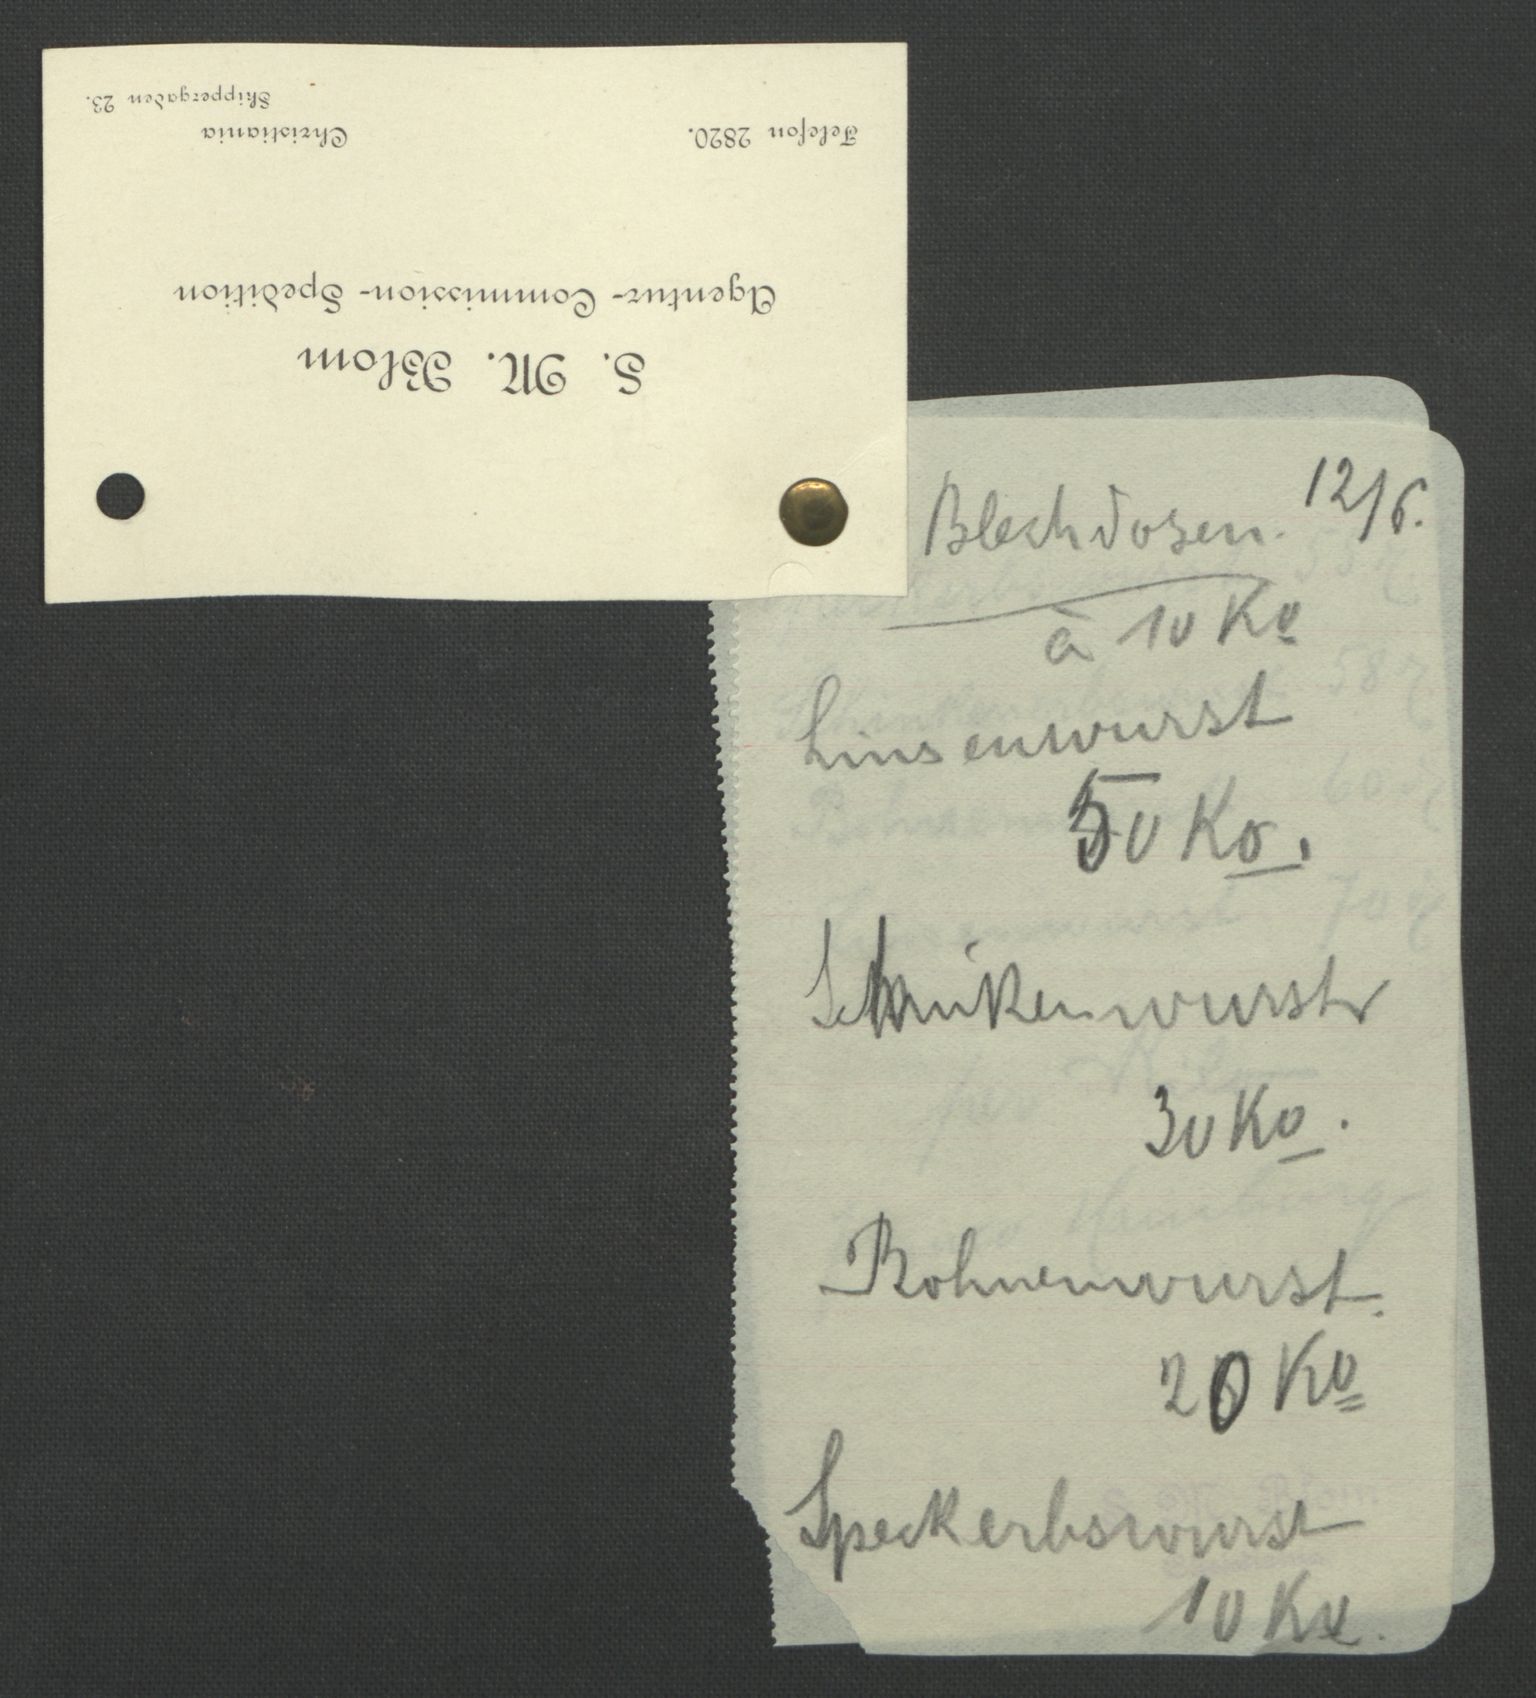 S. M. Blom
Agentur-Commission-Spedition
Telefon 2820.
Christiania
Skippergaden 23.
12/6.
Blechdosen.
à 10 Ko
Linsenwurst
50 Ko.
Schinkenwurst
30 Ko.
Bohnenwurst.
20 Ko
Speckerbswurst
10 Ko.